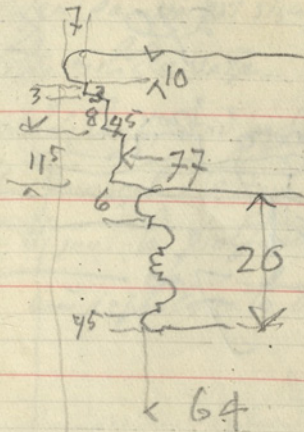 7
10
3 3
8 4⁵
11⁵
77
6
20
45
64